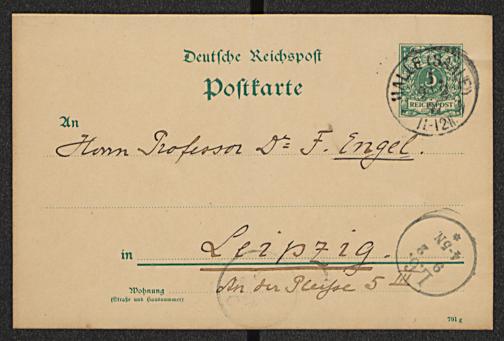 Deutsche Reichspost
Postkarte
HALLE (SAALE)
5
REICHSPOST
11-12V.
An
Herrn Professor Dr. F. Engel.
in Leipzig.
An der Pleisse 5 III
Wohnung
(Straße und Hausnummer)
4-5N
791 g